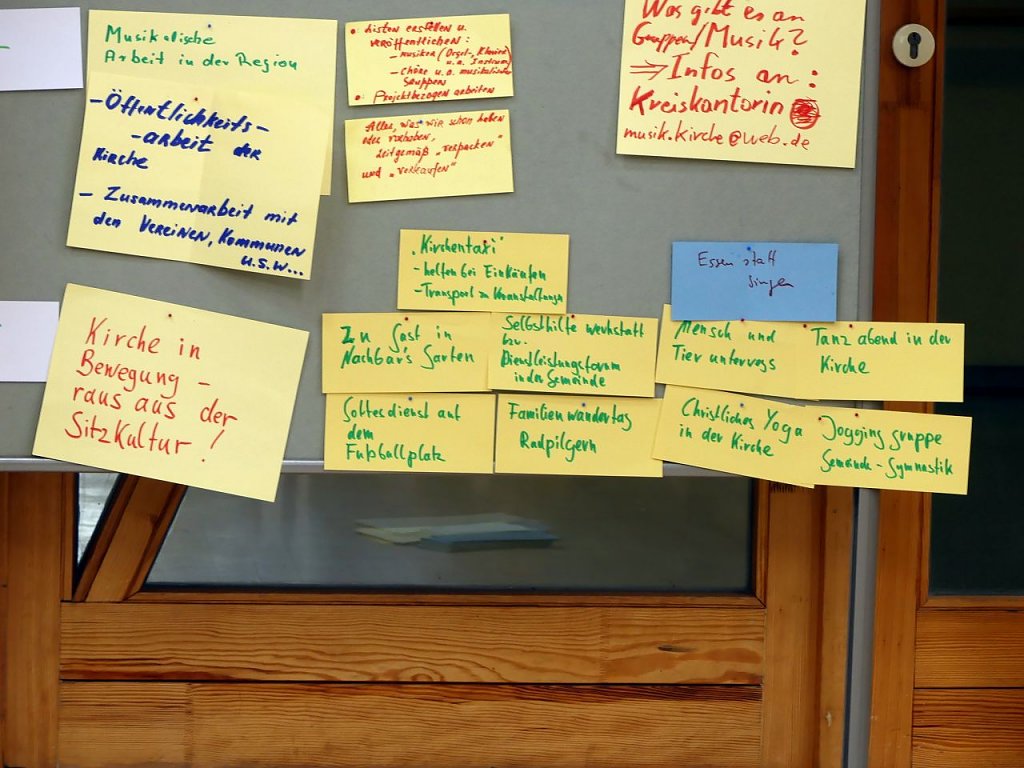 Musikalische
Arbeit in der Region
- Öffentlichkeits-
- arbeit der
Kirche
- Zusammenarbeit mit
den Vereinen, Kommunen
u.s.w...
• Listen erstellen u.
veröffentlichen:
- Musiker (Orgel-, Klavier,
u.a. Instrum)
- Chöre u.a. musikalische
Gruppen
• Projektbezogen arbeiten
Alles, was wir schon haben
oder vorhaben,
zeitgemäß „verpacken"
und „verkaufen"
Was gibt es an
Gruppen/Musik?
⇒ Infos an:
Kreiskantorin
musik.kirche@web.de
„Kirchentaxi"
- helfen bei Einkäufen
- Transport zu Veranstaltungen
Essen statt
singen
Zu Gast in
Nachbar's Garten
Selbsthilfe werkstatt
bzw.
Dienstleistungsforum
in der Gemeinde
Mensch und
Tier unterwegs
Tanz abend in der
Kirche
Gottesdienst auf
dem
Fußballplatz
Familienwandertag
Radpilgern
Christliches Yoga
in der Kirche
Jogging gruppe
Gemeinde - Gymnastik
Kirche in
Bewegung -
raus aus der
Sitzkultur!